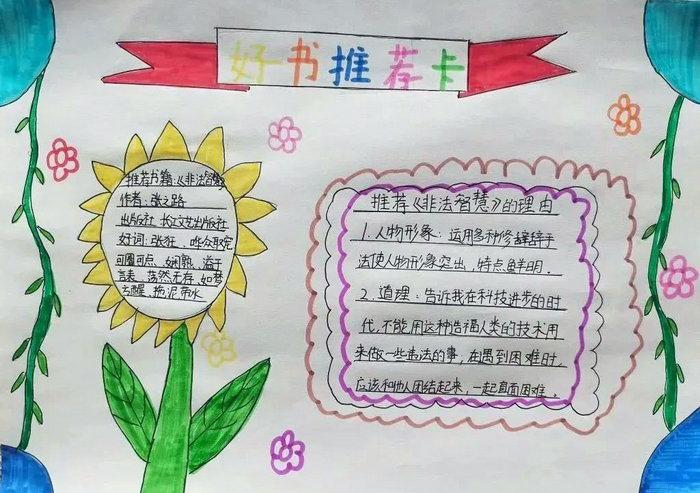 好书推荐卡
推荐书籍:《非法智慧》
作者:张之路
出版社 长江文艺出版社
好词:张狂、哗众取宠
可圈可点、娴熟、溢于
言表、荡然无存、如梦
方醒、拖泥带水
推荐《非法智慧》的理由
1.人物形象:运用多种修辞手
法使人物形象突出,特点鲜明。
2.道理:告诉我在科技进步的时
代,不能用这种造福人类的技术用
来做一些违法的事,在遇到困难时,
应该和他人团结起来,一起直面困难。